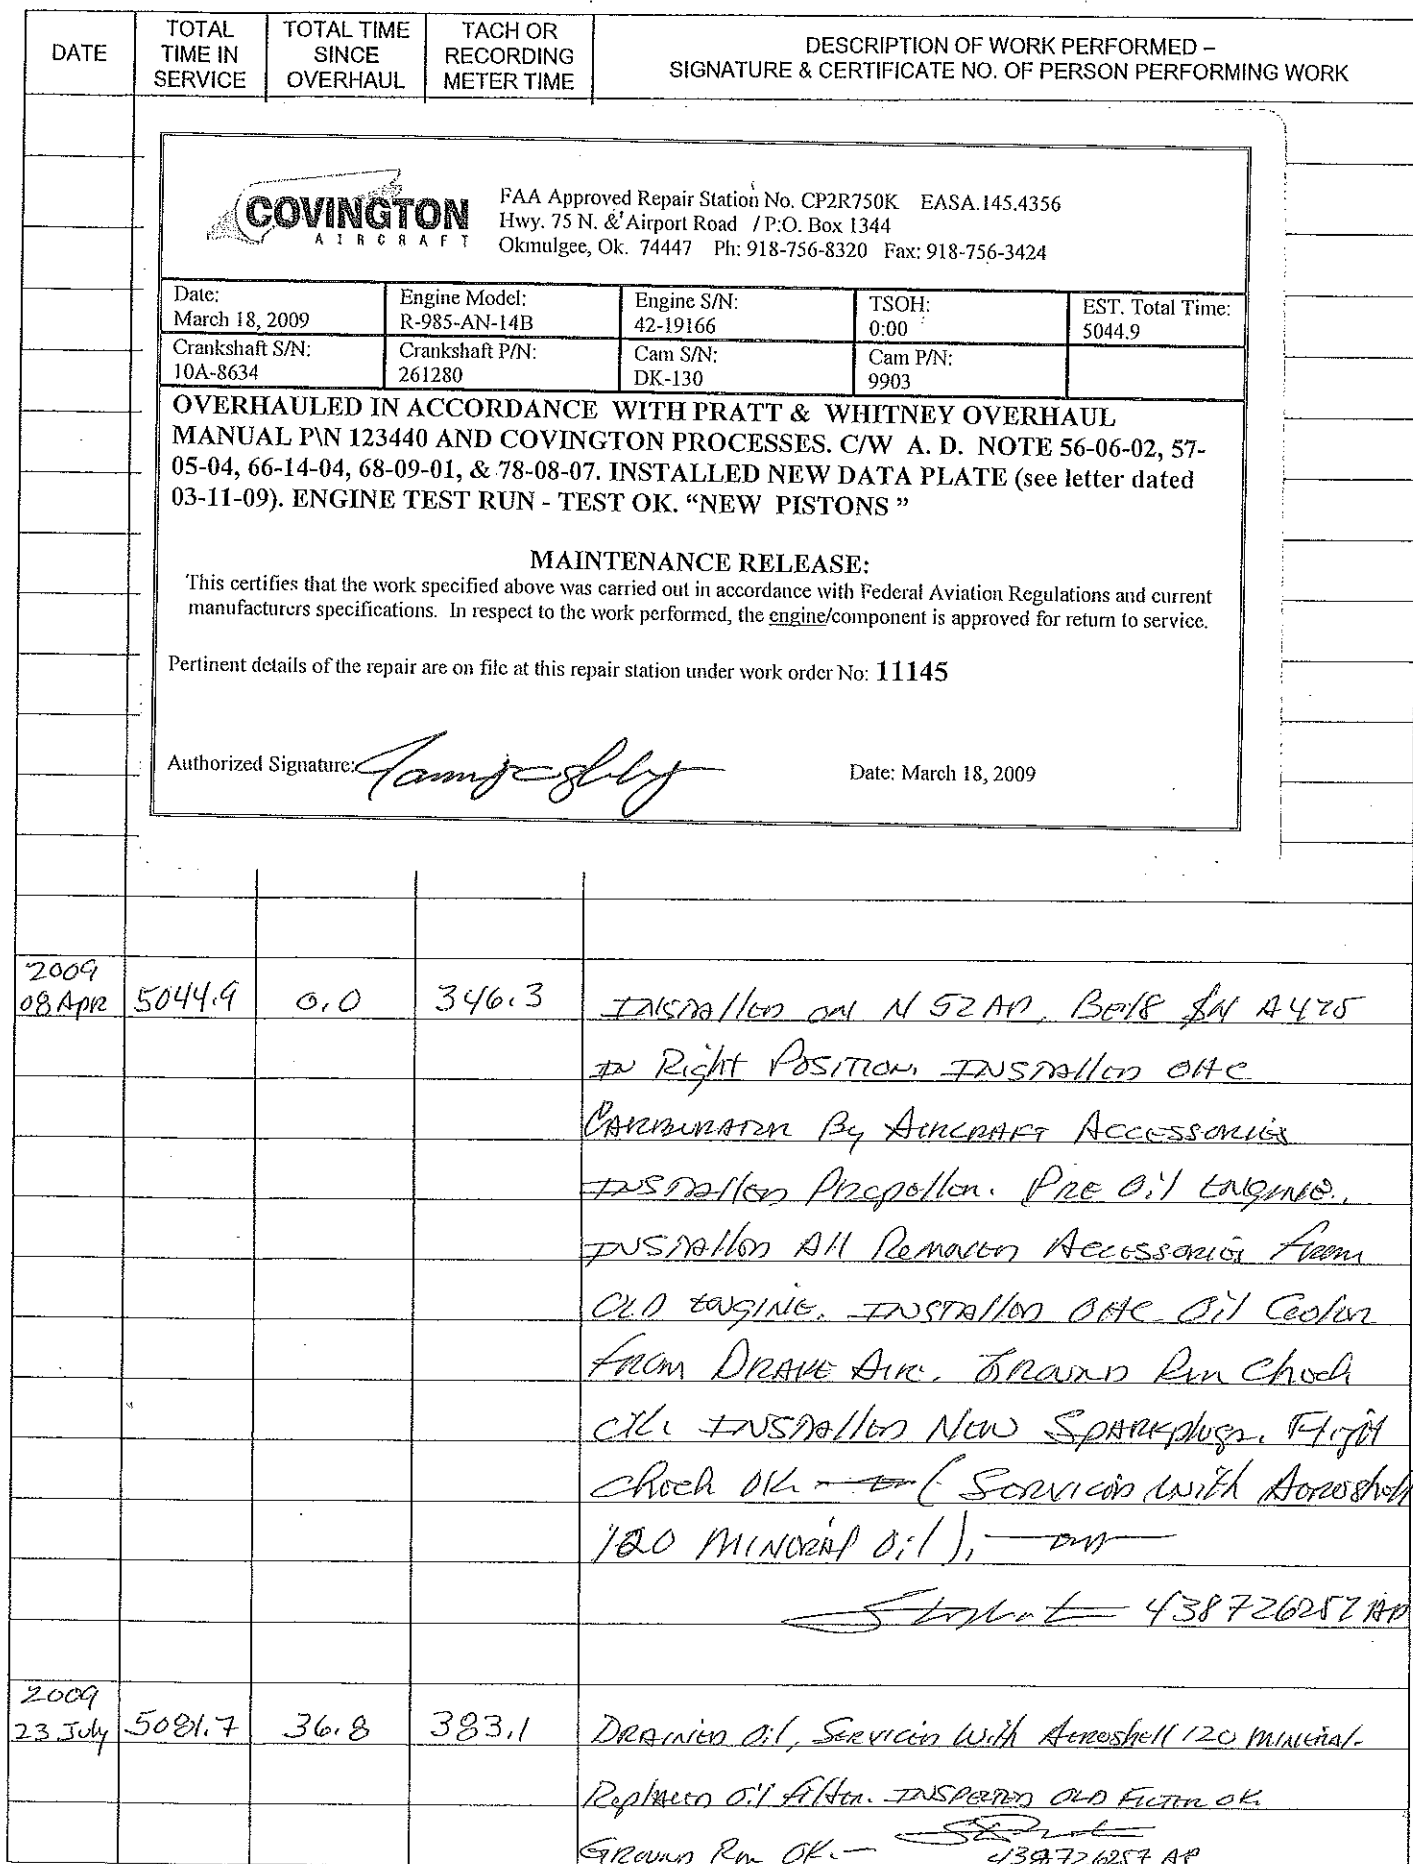 DATE
TOTAL TIME IN SERVICE
TOTAL TIME SINCE OVERHAUL
TACH OR RECORDING METER TIME
DESCRIPTION OF WORK PERFORMED –
SIGNATURE & CERTIFICATE NO. OF PERSON PERFORMING WORK
COVINGTON
AIRCRAFT
FAA Approved Repair Station No. CP2R750K EASA.145.4356
Hwy. 75 N. & Airport Road / P.O. Box 1344
Okmulgee, Ok. 74447 Ph: 918-756-8320 Fax: 918-756-3424
Date: March 18, 2009
Engine Model: R-985-AN-14B
Engine S/N: 42-19166
TSOH: 0:00
EST. Total Time: 5044.9
Crankshaft S/N: 10A-8634
Crankshaft P/N: 261280
Cam S/N: DK-130
Cam P/N: 9903
OVERHAULED IN ACCORDANCE WITH PRATT & WHITNEY OVERHAUL
MANUAL P\N 123440 AND COVINGTON PROCESSES. C/W A. D. NOTE 56-06-02, 57-
05-04, 66-14-04, 68-09-01, & 78-08-07. INSTALLED NEW DATA PLATE (see letter dated
03-11-09). ENGINE TEST RUN - TEST OK. “NEW PISTONS ”
MAINTENANCE RELEASE:
This certifies that the work specified above was carried out in accordance with Federal Aviation Regulations and current
manufacturers specifications. In respect to the work performed, the engine/component is approved for return to service.
Pertinent details of the repair are on file at this repair station under work order No: 11145
Authorized Signature:
Date: March 18, 2009
2009
08 Apr 5044.9 0.0 346.3 Installed on N 52 AP, Be18 SN A475
in Right Position. Installed OHC
Carburator By Aircraft Accessories
Installed Propeller. Pre Oil Engine.
Installed All Removed Accessories from
Old Engine. Installed OHC Oil Cooler
from Drake Air. Ground Run Check
OK. Installed New Sparkplugs. Flight
Check OK (Serviced with Aeroshell
120 Mineral Oil).
438726257 AP
2009
23 July 5081.7 36.8 383.1 Drained Oil, Serviced With Aeroshell 120 Mineral.
Replaced Oil filter. Inspected Old Filter OK.
Ground Run OK.
438726257 AP